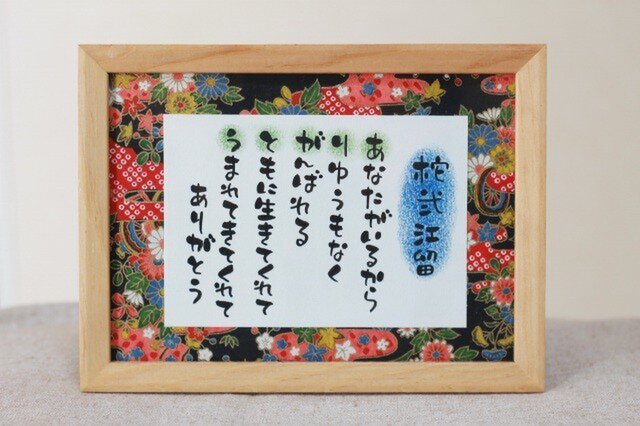 柁弐江留
あなたがいるから
りゆうもなく
がんばれる
ともに生きてくれて
うまれてきてくれて
ありがとう